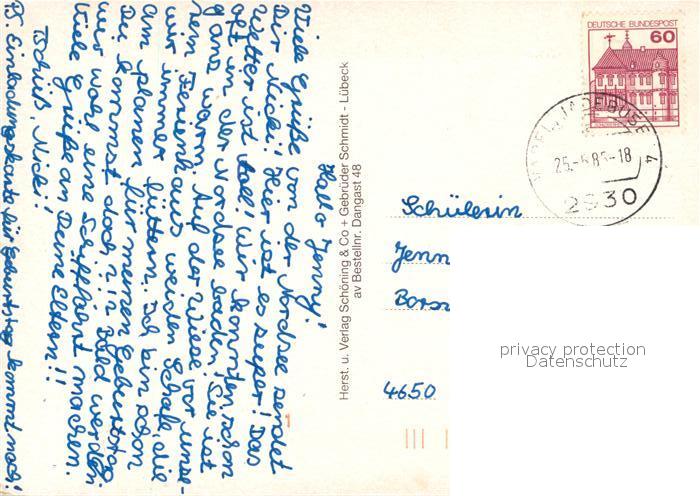 Hallo Jenny!
Viele Grüße von der Nordsee sendet
Dir Nicki! Hier ist es seeper! Das
Wetter ist toll! Wir konnten schon
oft in der Nordsee baden! Sie ist
ganz warm. Auf der Wiese vor unse-
rem Ferienhaus werden Schafe, die
wir immer füttern. Ich bin schon
am planen für meinen Geburtstag.
Du kommst doch!? In Bald werden
wir wohl eine Schifffahrt machen.
Viele Grüße an Deine Eltern!!
Tschüß, Nicki!
PS. Einladungskarte für Geburtstag kommt noch!
Herst. u. Verlag Schöning & Co + Gebrüder Schmidt - Lübeck
av Bestellnr. Dangast 48
DEUTSCHE BUNDESPOST
60
VAREL, JADEBUSEN 4
25.-5.8 -18
2930
Schülerin
Jenn
Bors
4650
privacy protection
Datenschutz